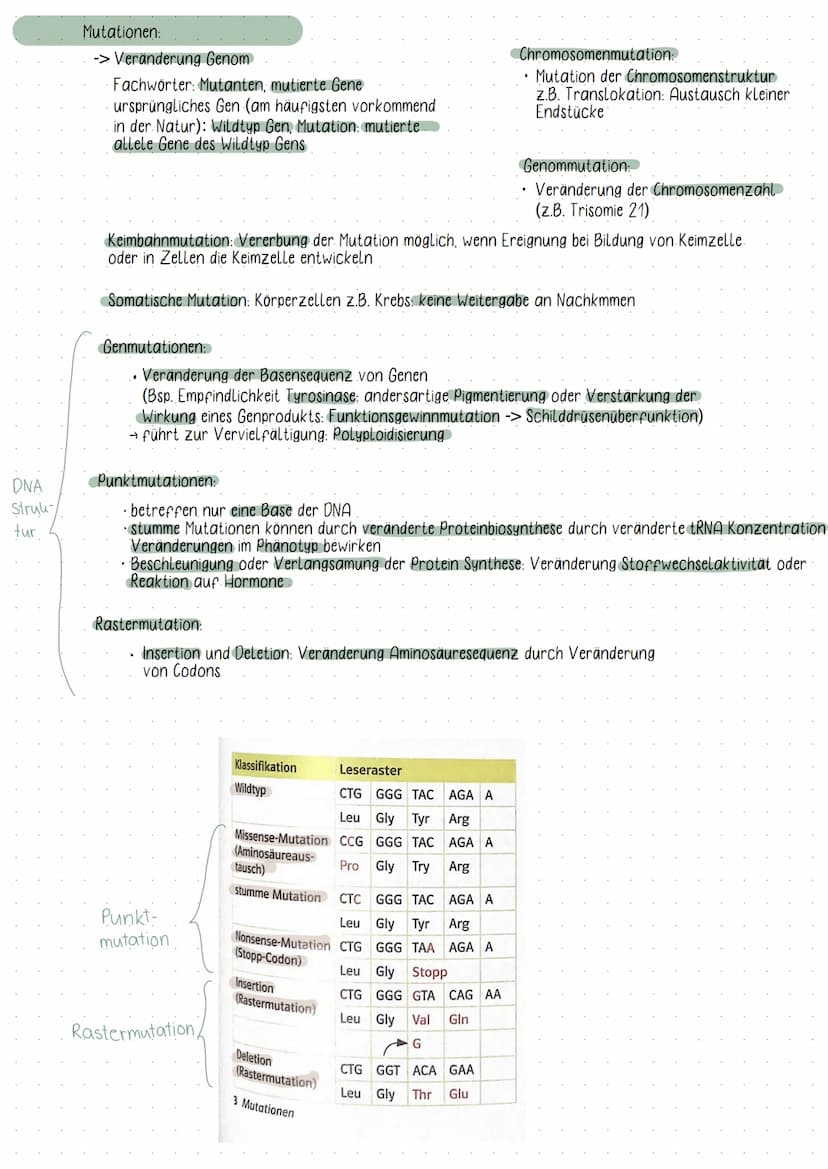 Mutationen:
-> Veränderung Genom
Fachwörter: Mutanten, mutierte Gene
ursprüngliches Gen (am häufigsten vorkommend
in der Natur): Wildtyp Gen, Mutation: mutierte
allele Gene des Wildtyp Gens
Chromosomenmutation:
• Mutation der Chromosomenstruktur
z.B. Translokation: Austausch kleiner
Endstücke
Genommutation:
• Veränderung der Chromosomenzahl
(z.B. Trisomie 21)
Keimbahnmutation: Vererbung der Mutation möglich, wenn Ereignung bei Bildung von Keimzelle
oder in Zellen die Keimzelle entwickeln
Somatische Mutation: Körperzellen z.B. Krebs: keine Weitergabe an Nachkmmen
DNA
Struk-
tur
Genmutationen:
• Veränderung der Basensequenz von Genen
(Bsp. Empfindlichkeit Tyrosinase: andersartige Pigmentierung oder Verstärkung der
Wirkung eines Genprodukts: Funktionsgewinnmutation -> Schilddrüsenüberfunktion)
→ führt zur Vervielfältigung: Polyploidisierung
Punktmutationen:
• betreffen nur eine Base der DNA
• stumme Mutationen können durch veränderte Proteinbiosynthese durch veränderte tRNA Konzentration
Veränderungen im Phänotyp bewirken
• Beschleunigung oder Verlangsamung der Protein Synthese: Veränderung Stoffwechselaktivität oder
Reaktion auf Hormone
Rastermutation:
• Insertion und Deletion: Veränderung Aminosäuresequenz durch Veränderung
von Codons
Klassifikation Leseraster
Wildtyp CTG GGG TAC AGA A
Leu Gly Tyr Arg
Punkt-
mutation
Missense-Mutation CCG GGG TAC AGA A
(Aminosäureaus-
tausch) Pro Gly Try Arg
stumme Mutation CTC GGG TAC AGA A
Leu Gly Tyr Arg
Nonsense-Mutation CTG GGG TAA AGA A
(Stopp-Codon)
Leu Gly Stopp
Rastermutation
Insertion CTG GGG GTA CAG AA
(Rastermutation)
Leu Gly Val Gln
G
Deletion CTG GGT ACA GAA
(Rastermutation)
Leu Gly Thr Glu
3 Mutationen